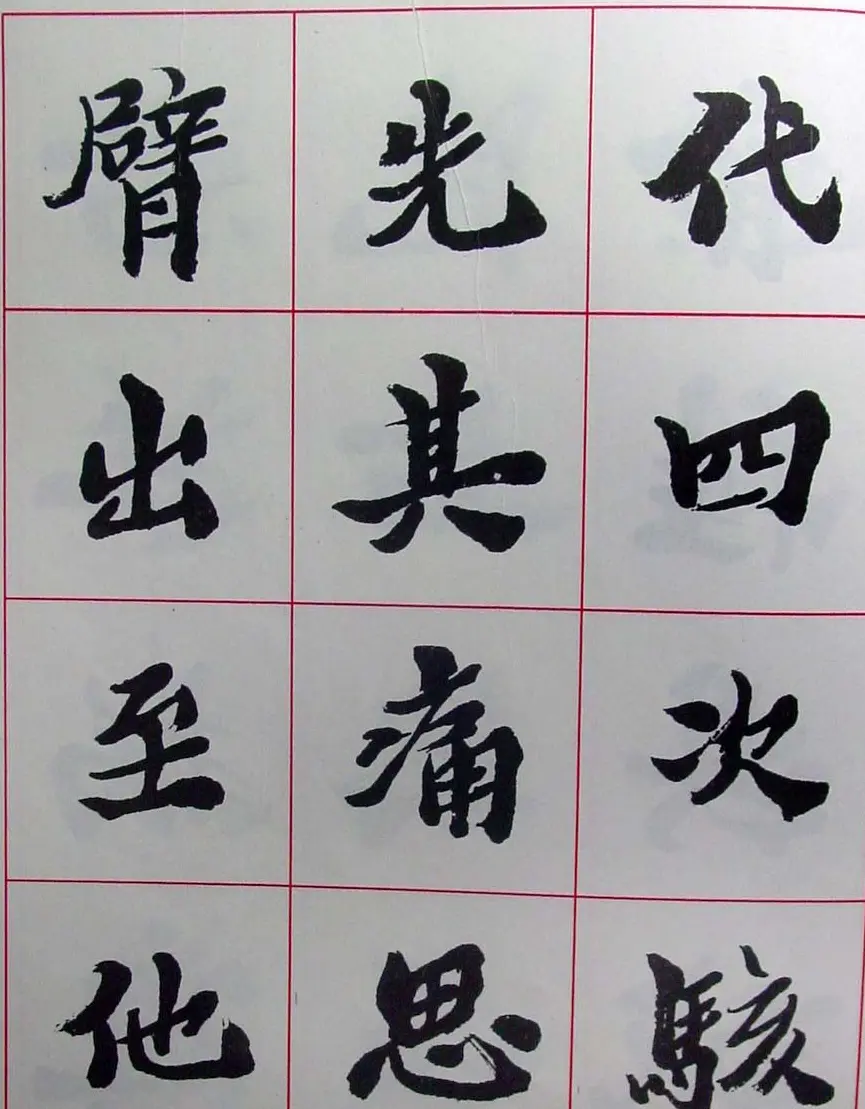 代四次駭
先其痛思
臂出至他